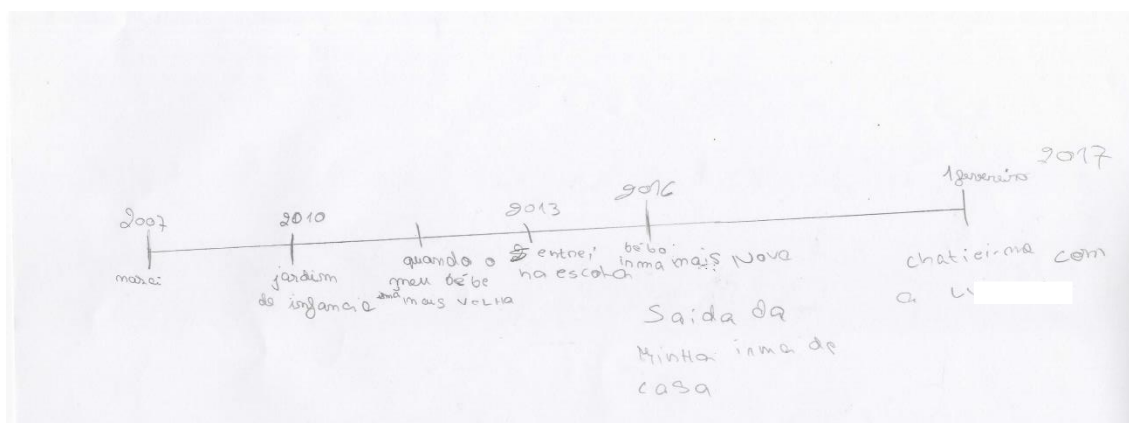 2007
nasci
2010
jardim
de infancia
quando o
meu bébe
mais velha
2013
entrei
na escola
2016
bébo
inma mais nova
Saida da
Minha inma de
casa
1 fevereiro 2017
chatiei-ma com
a